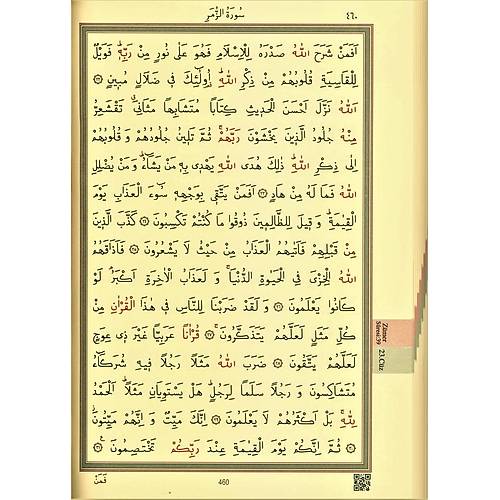 سُورَةُ الزُّمَرِ
٤٦٠
اَفَمَنْ شَرَحَ اللّٰهُ صَدْرَهُ لِلْاِسْلَامِ فَهُوَ عَلٰى نُورٍ مِنْ رَبِّه۪ۜ فَوَيْلٌ
لِلْقَاسِيَةِ قُلُوبُهُمْ مِنْ ذِكْرِ اللّٰهِۜ اُو۬لٰٓئِكَ ف۪ي ضَلَالٍ مُب۪ينٍ ﴿٢٢﴾
اَللّٰهُ نَزَّلَ اَحْسَنَ الْحَد۪يثِ كِتَابًا مُتَشَابِهًا مَثَانِيَۗ تَقْشَعِرُّ
مِنْهُ جُلُودُ الَّذ۪ينَ يَخْشَوْنَ رَبَّهُمْۚ ثُمَّ تَل۪ينُ جُلُودُهُمْ وَقُلُوبُهُمْ
اِلٰى ذِكْرِ اللّٰهِۜ ذٰلِكَ هُدَى اللّٰهِ يَهْد۪ي بِه۪ مَنْ يَشَٓاءُۜ وَمَنْ يُضْلِلِ
اللّٰهُ فَمَا لَهُ مِنْ هَادٍ ﴿٢٣﴾ اَفَمَنْ يَتَّق۪ي بِوَجْهِه۪ سُٓوءَ الْعَذَابِ يَوْمَ
الْقِيٰمَةِۜ وَق۪يلَ لِلظَّالِم۪ينَ ذُوقُوا مَا كُنْتُمْ تَكْسِبُونَ ﴿٢٤﴾ كَذَّبَ الَّذ۪ينَ
مِنْ قَبْلِهِمْ فَاَتٰيهُمُ الْعَذَابُ مِنْ حَيْثُ لَا يَشْعُرُونَ ﴿٢٥﴾ فَاَذَاقَهُمُ
اللّٰهُ الْخِزْيَ فِي الْحَيٰوةِ الدُّنْيَاۚ وَلَعَذَابُ الْاٰخِرَةِ اَكْبَرُۢ لَوْ
كَانُوا يَعْلَمُونَ ﴿٢٦﴾ وَلَقَدْ ضَرَبْنَا لِلنَّاسِ ف۪ي هٰذَا الْقُرْاٰنِ مِنْ
كُلِّ مَثَلٍ لَعَلَّهُمْ يَتَذَكَّرُونَۚ ﴿٢٧﴾ قُرْاٰنًا عَرَبِيًّا غَيْرَ ذ۪ي عِوَجٍ
لَعَلَّهُمْ يَتَّقُونَ ﴿٢٨﴾ ضَرَبَ اللّٰهُ مَثَلًا رَجُلًا ف۪يهِ شُرَكَٓاءُ
مُتَشَاكِسُونَ وَرَجُلًا سَلَمًا لِرَجُلٍۜ هَلْ يَسْتَوِيَانِ مَثَلًاۜ اَلْحَمْدُ
لِلّٰهِۚ بَلْ اَكْثَرُهُمْ لَا يَعْلَمُونَ ﴿٢٩﴾ اِنَّكَ مَيِّتٌ وَاِنَّهُمْ مَيِّتُونَۘ
﴿٣٠﴾ ثُمَّ اِنَّكُمْ يَوْمَ الْقِيٰمَةِ عِنْدَ رَبِّكُمْ تَخْتَصِمُونَ۟ ﴿٣١﴾
فَمَنْ
460
Zümer
Sûresi:39
23.Cüz